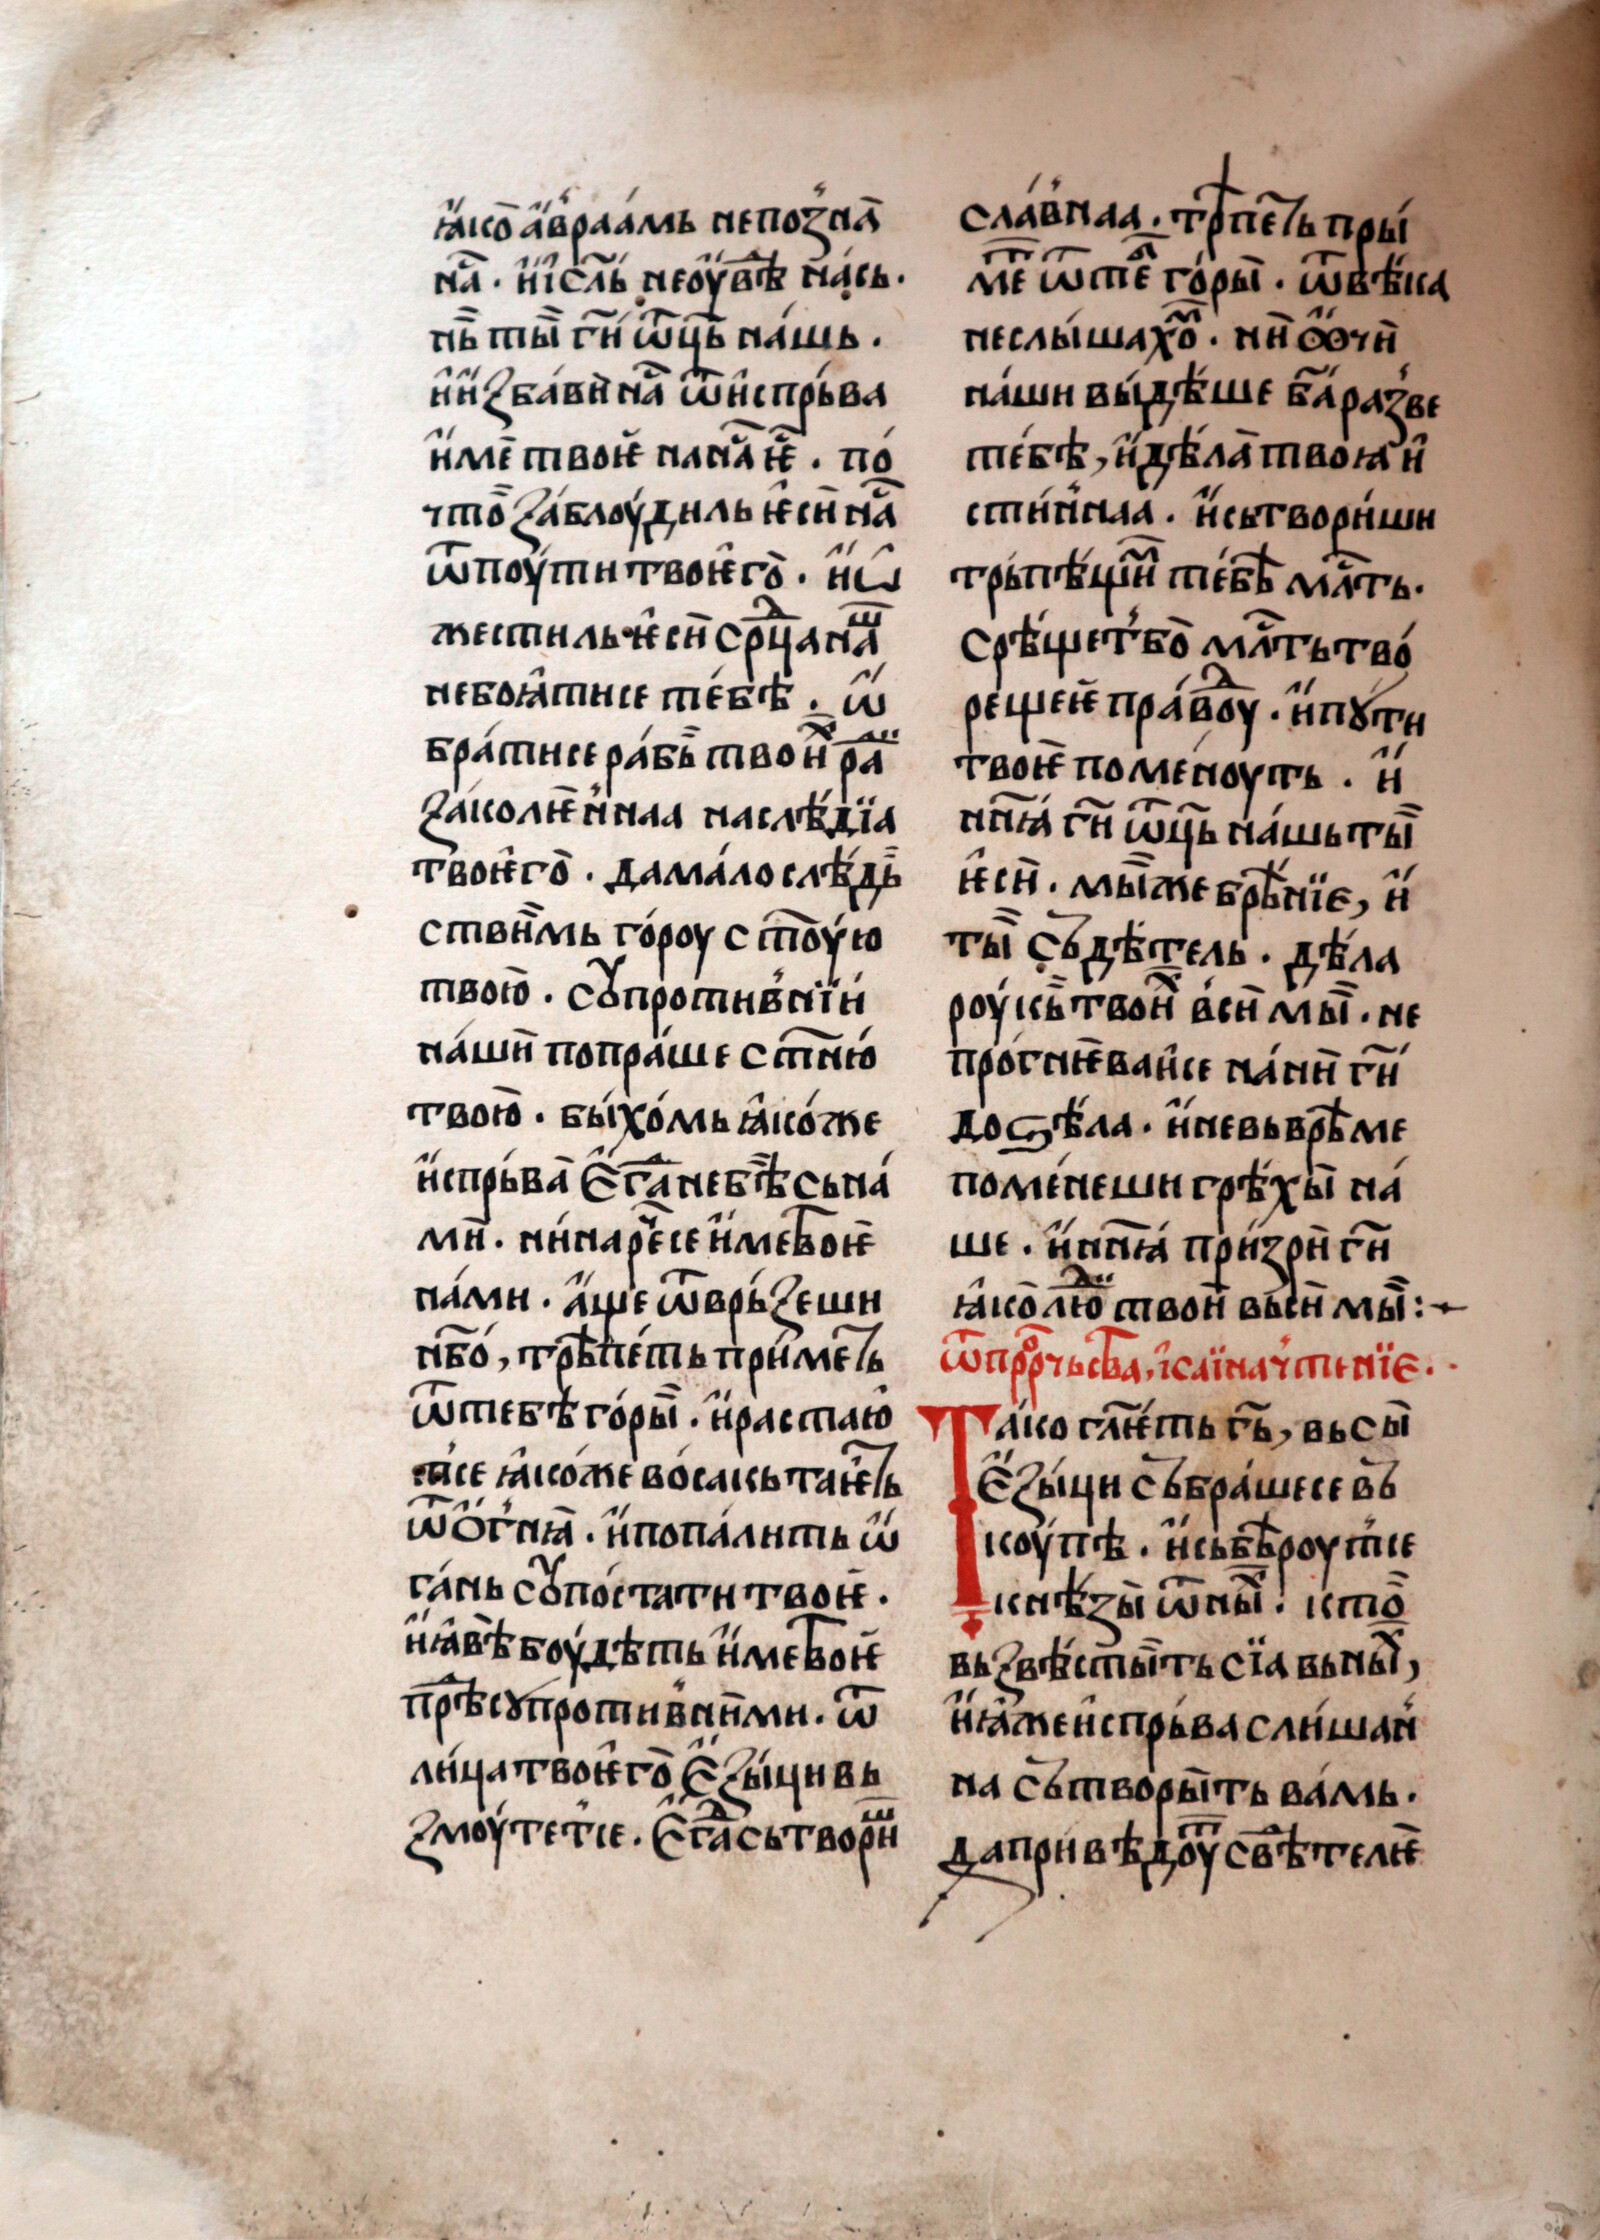 ꙗко̀ а҆враа́мь непо́зна̀
на̑с. и҆ і҆с҃ль неѹ҆вѣ̑ на́сь.
нь̏ ты̏ гн҃и ѿц҃ь на́шь.
и҆ и҆ꙁба́ви на̑с ѿ и҆спрь́ва
и҆ме̏ твоѥ̀ на на̑с ѥ҆̑с. по́
что̀ ꙁаблоу́диль ѥ҆си̏ на̑с
ѿ поу́ти твоѥ҆го̀. и҆ ѡ҆
жестиль ѥ҆си̏ срⷣца на̑ш
не боꙗ́тисе те́бѣ. ѡ҆
бра́тисе ра́бь̏ твои́ⷯ ра́ди
ꙁаколѥ́н'наа наслѣ́дїа
твоѥ҆го̀. да ма́ло слѣ́дь̏
стви̏мь го́роу ст҃оу́ю
твою̀. соу́противнїи
на́ши̏ попра́ше ст҃ню́
твою̀. бы́хо́мь ꙗ҆ко́же
и҆спрь́ва̀ є҆гда̀ не бѣ̏ сь на́
ми̏. ни нарⷱ҇есе и҆ме твоѥ̀
на́ми. а҆ще ѿврь́ꙁеши
нб҃о́, трѣ́петь при́меть
ѿ тебѣ го́ры̏. и҆ растаю҆
т'се ꙗ҆коже во́сакь таѥ҆ть
ѿ ѻ҆г'нꙗ̀. и҆ попа́лить ѡ҆
га́нь соу́поста́ти твоѥ̀.
и҆ ꙗ҆вѣ̏ боу́дѣть и҆ме твоѥ̀
прѣ̏ сꙋпроти́вни̏ми. ѿ
ли́ца твоѥ҆го̀ є҆ꙁы́ци вь
ꙁмоу́тет'се. є҆гда̀ сьтвори́ш
сла́в'наа. трь́петь при́
меть ѿ те́бе го́ры̏. ѿ вѣ́ка
неслы́шахо̑м. ни̏ ѻ҆чи̏
на́ши вы́дѣ́ше ба҃ ра́ꙁве
те́бѣ, и҆ дѣ́ла̀ твоꙗ̀ и҆
сти́н'наа. и҆ сьтвори́ши
трь́пѣщи̑м те́бѣ̏ млⷭ҇ть.
срѣ́щет'бо̀ млⷭ҇ть тво́
рещеѥ̀ пра́вдоу. и҆ пꙋ́ти
твоѥ̀ поме́ноуть. и҆
нн҃ꙗ́ гн҃и ѿц҃ь на́шь ты̏
ѥ҆си̏. мы̏же брѣ́нїе, и҆
ты̏ съдѣ́тель. дѣ́ла
роу́кь̏ твои́ⷯ в́си̏ мы̏. не
про́гнѥваи҆се на́ ни̏ гн҃и́
до ѕѣ́ла. и҆ не вь врѣ̏ме
поме́неши грѣ́хы̏ на́
ше. и҆ нн҃ꙗ́ при́ꙁри̏ гн҃и
ꙗ҆ко лю́дїе твои̏ вьси̏ мы̏:
ѿ прⷪ҇рчьства, і҆саїна ч'тенїе.
Та́ко гл҃ѥ́ть гь҃, вьсы̏
є҆ꙁы́ци събра́шесе въ
коу́пѣ. и҆ сьбѣ̏роут'се
кнѣ́ꙁы̏ ѿ ны́ⷯ. кто̀
вьꙁвѣ́сты̏ть сїа вь ны́ⷯ,
и҆ ꙗ҆же и҆спрь́ва сли́шан'
на сътворы̏ть ва́мь.
да при́вѣдоу́т свѣ̏телѥ̀